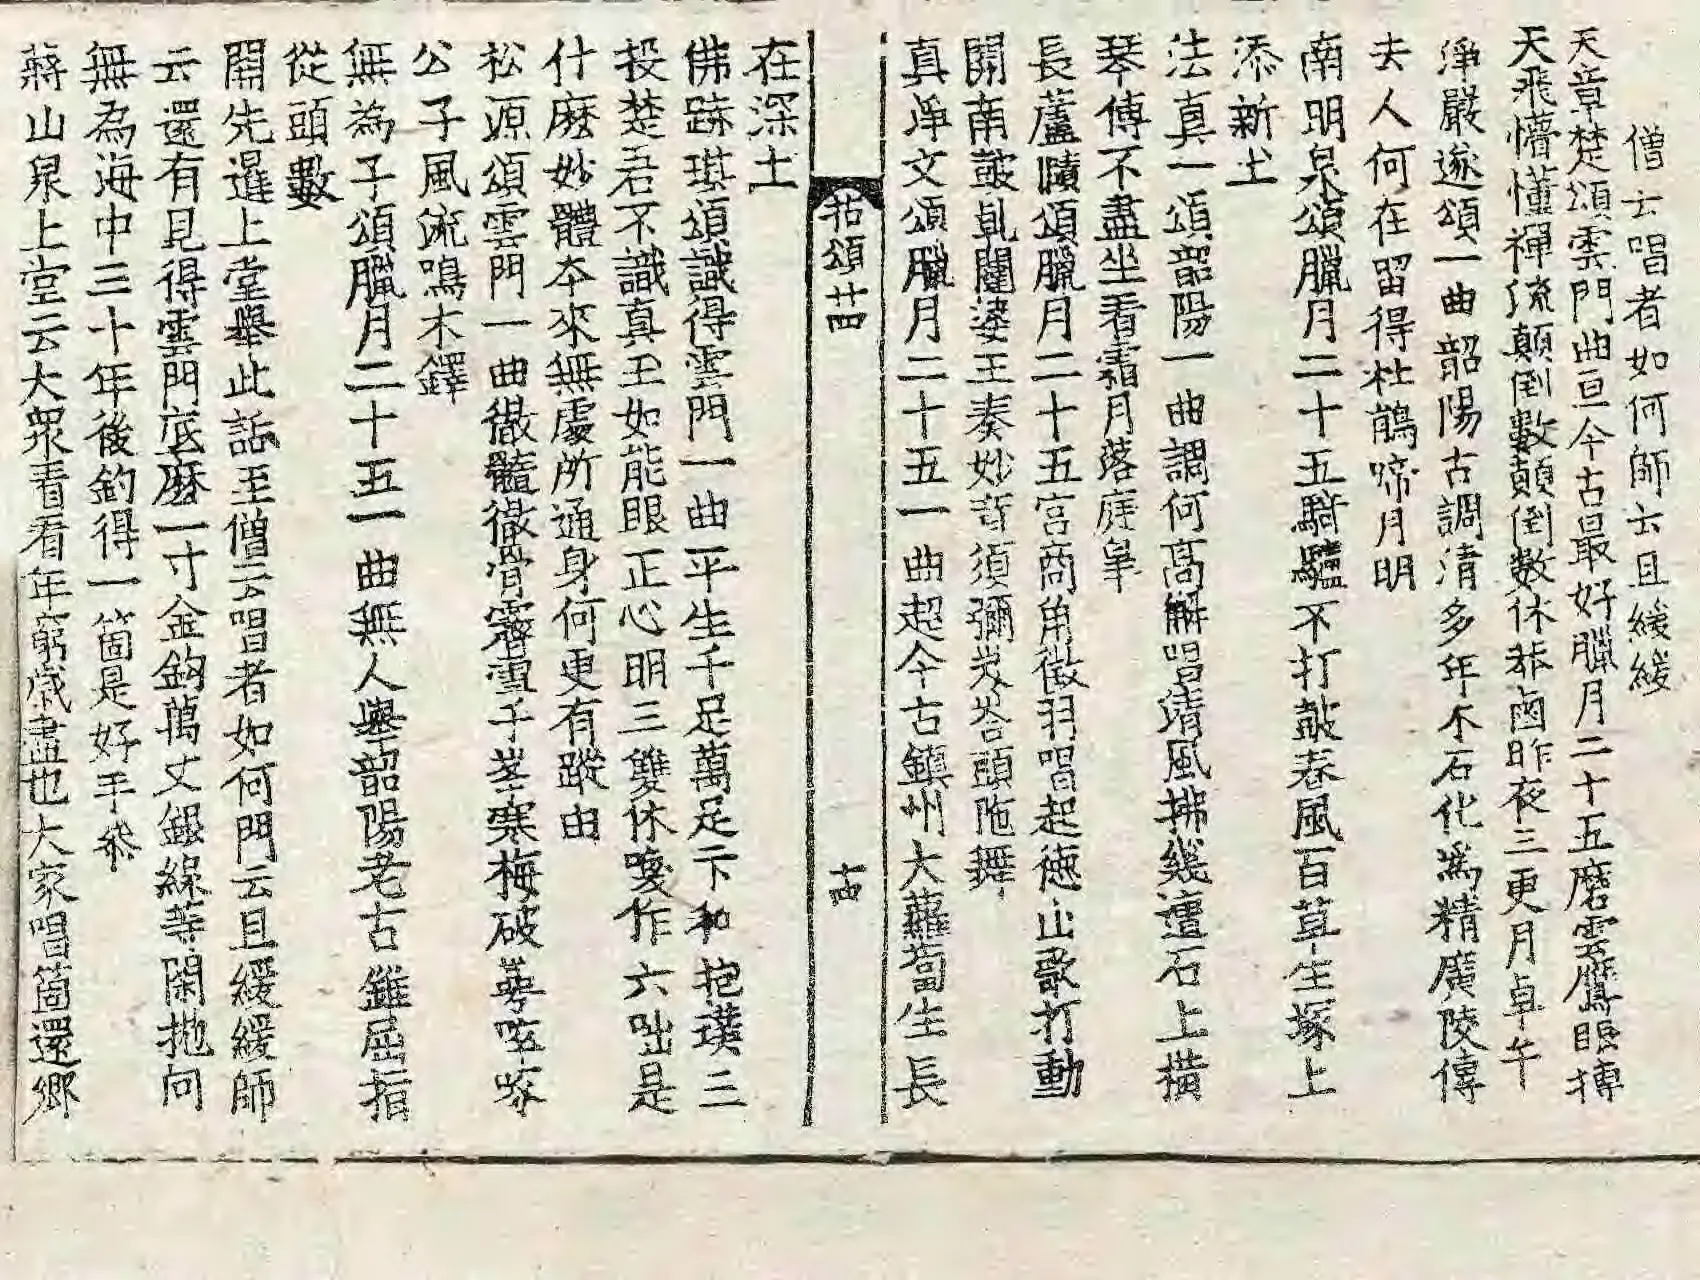 僧云唱者如何師云且緩緩
天章楚頌雲門曲亘今古最好臘月二十五磨雲鷹眼搏
天飛懵懂禪流顛倒數顛倒數休莽鹵昨夜三更月卓午
淨嚴遂頌一曲韶陽古調清多年木石化爲精廣陵傳
去人何在留得杜鵑啼月明
南明泉頌臘月二十五騎驢不打皷春風百草生塚上
添新土
法真一頌韶陽一曲調何高解唱清風拂幾遭石上橫
琴傳不盡坐看霜月落庭皐
長蘆賾頌臘月二十五宮商角徵羽唱起德山歌打動
關南皷乹闥婆王奏妙音須彌岌峇頭陁舞
真淨文頌臘月二十五一曲超今古鎮州大蘿蔔生長
拈頌廿四
十四
在深土
佛跡琪頌識得雲門一曲平生千足萬足卞和抱璞三
投楚君不識真玉如能眼正心明三雙休喚作六咄是
什麽妙體本來無處所通身何更有蹤由
松源頌雲門一曲徹髓徹骨霽雪千峯寒梅破萼咹㗇
公子風流鳴木鐸
無為子頌臘月二十五一曲無人擧韶陽老古錐屈指
從頭數
開先暹上堂擧此話至僧云唱者如何門云且緩緩師
云還有見得雲門底麽一寸金鉤萬丈銀線等閑抛向
無為海中三十年後釣得一箇是好手叅
蔣山泉上堂云大衆看看年窮歲盡也大家唱箇還鄉